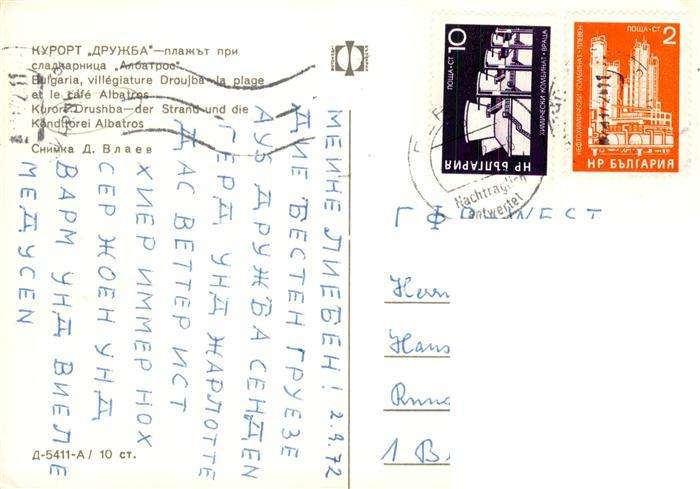 КУРОРТ „ДРУЖБА"—плажът при
сладкарница „Албатрос"
Bulgaria, villégiature Droujba—la plage
et le café Albatros
Kurort Drushba—der Strand und die
Konditorei Albatros
Снимка Д. Влаев
Д-5411-А / 10 ст.
МЕИНЕ ЛИЕБЕН! 2.9.72
ДИЕ БЕСТЕН ГРУЕЗЕ
АУБ ДРУЖБА СЕНДЕН
ГЕРД УНД ЖАРЛОТТЕ
ДАС ВЕТТЕР ИСТ
ХИЕР ИММЕР НОХ
СЕР ЖОЕН УНД
ВАРМ УНД ВИЕЛЕ
МЕДУСЕН
10
ПОЩА·СТ.
ХИМИЧЕСКИ КОМБИНАТ·ВРАЦА
НР БЪЛГАРИЯ
ПОЩА·СТ. 2
НЕФТОХИМИЧЕСКИ КОМБИНАТ·ПЛЕВЕН
НР БЪЛГАРИЯ
Nachträglich
entwertet
Herrn
Hans
1 B